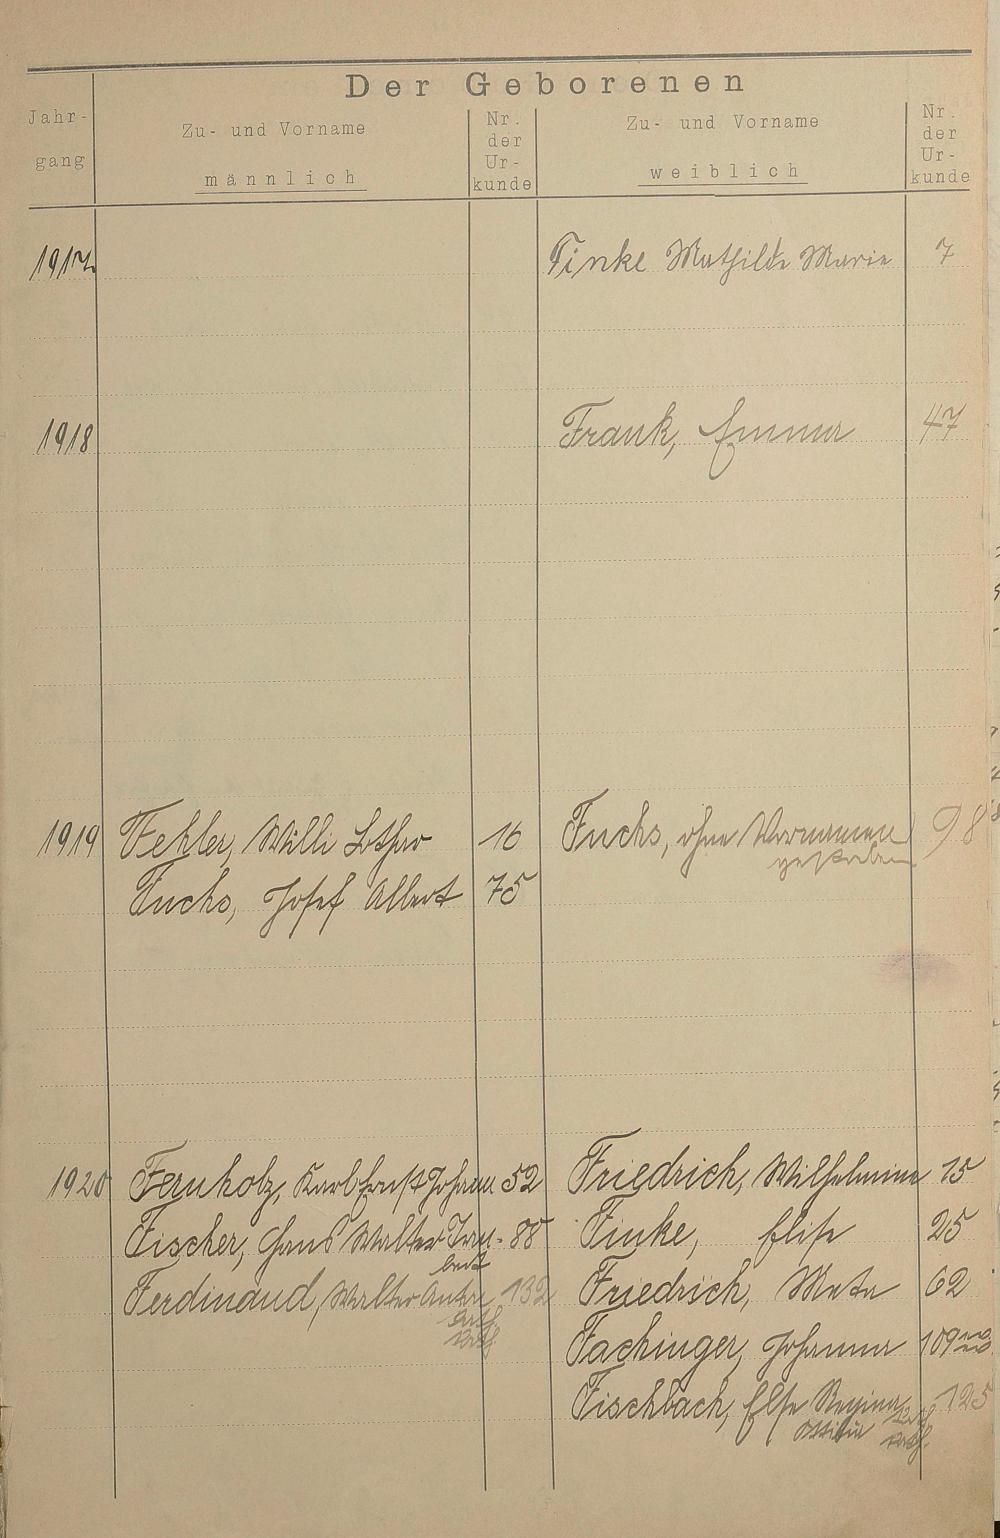 Der Geborenen
Jahr-
gang
Zu- und Vorname
männlich
Nr.
der
Ur-
kunde
Zu- und Vorname
weiblich
Nr.
der
Ur-
kunde
1917 Finke Mathilde Marie 7
1918 Frank, Emma 47
1919 Fehler, Willi Lothar 16 Fuchs, ohne Vornamen 98
gestorben
Fuchs, Josef Albert 75
1920 Fernholz, Karl Ernst Johann 52 Friedrich, Wilhelmine 15
Fischer, Hans Walter 88 Finke, Elise 25
bert
Ferdinand, Walter 132 Friedrich, Meta 62
Fachinger, Johanna 109
Fischbach, Else Regina 125
Ottilie